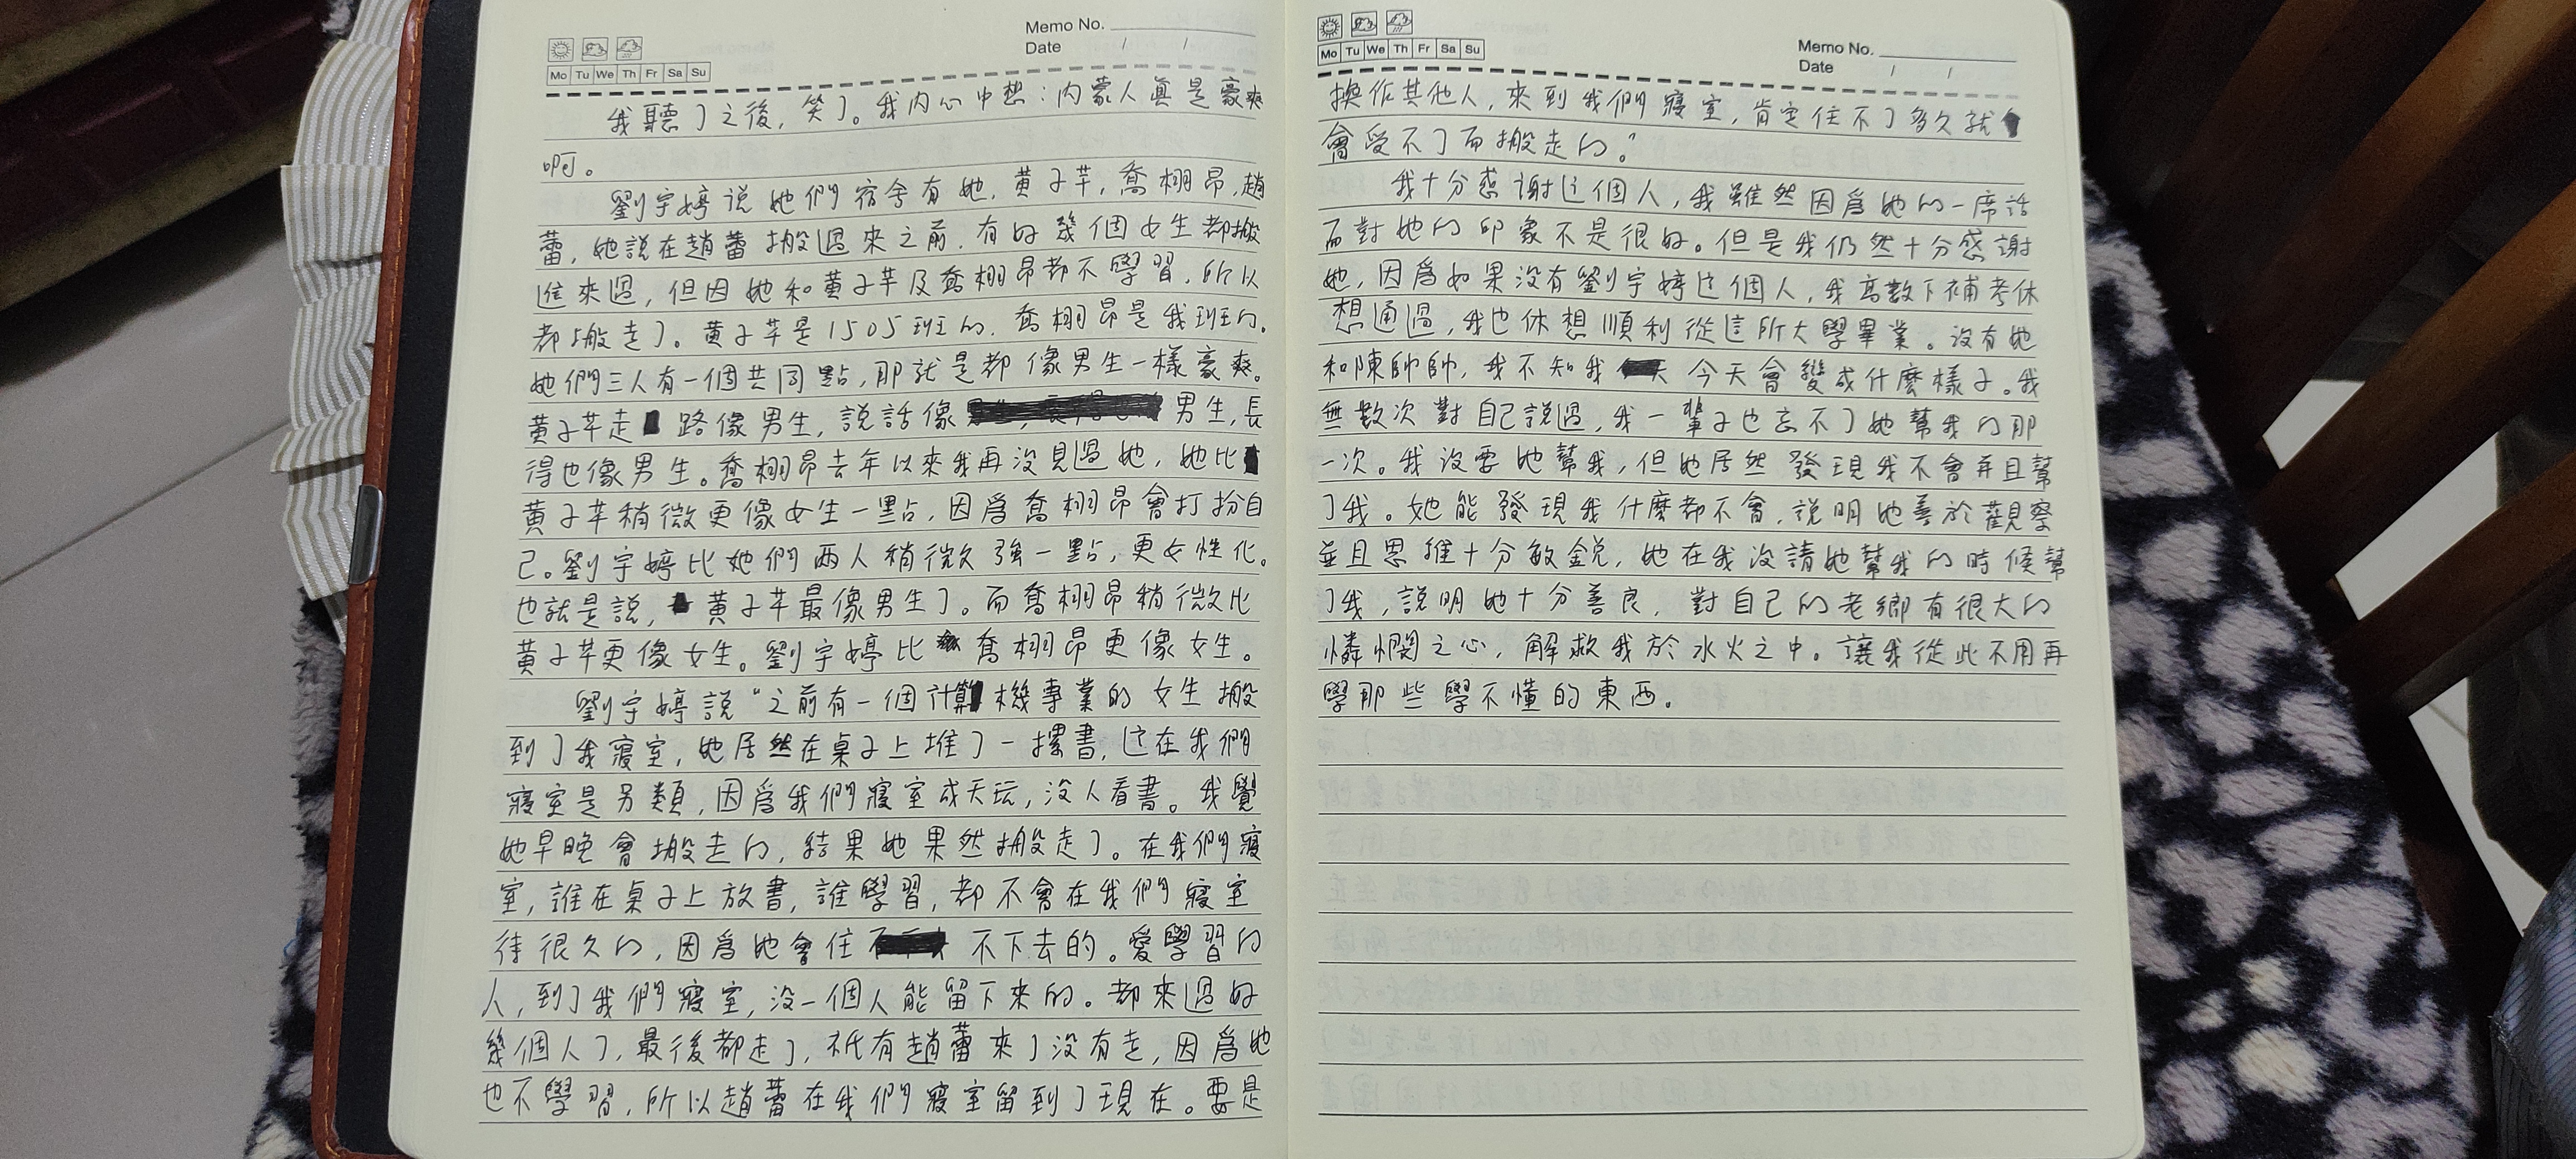 Memo No.
Date / /
Mo Tu We Th Fr Sa Su
我聽了之後,笑了。我内心中想:内蒙人真是豪爽
啊。
劉宇婷说她們宿舍有她,黄子芊,喬栩昂,趙
蕾,她說在趙蕾搬過來之前,有好幾個女生都搬
進來過,但因她和黄子芊及喬栩昂都不學習,所以
都搬走了。黄子芊是1505班的,喬栩昂是我班的。
她們三人有一個共同點,那就是都像男生一樣豪爽。
黄子芊走路像男生,説話像男生,長
得也像男生。喬栩昂去年以來我再没見過她,她比
黄子芊稍微更像女生一點,因爲喬栩昂會打扮自
己。劉宇婷比她們两人稍微久强一點,更女性化。
也就是說,黄子芊最像男生了。而喬栩昂稍微比
黄子芊更像女生。劉宇婷比喬栩昂更像女生。
劉宇婷說“之前有一個計算機專業的女生搬
到了我寢室,她居然在桌子上堆了一摞書,这在我們
寢室是另類,因爲我們寢室成天玩,没人看書。我覺
她早晚會搬走的,結果她果然搬走了。在我們寢
室,誰在桌子上放書,誰學習,都不會在我們寢室
待很久的,因爲她會住不下去的。愛學習的
人,到了我們寢室,没一個人能留下來的。都來過好
幾個人了,最後都走了,祇有趙蕾來了没有走,因爲她
也不學習,所以趙蕾在我們寢室留到了現在。要是
Mo Tu We Th Fr Sa Su
Memo No.
Date / /
換作其他人,來到我們寢室,肯定住不了多久就
會受不了而搬走的。”
我十分感謝这個人,我雖然因爲她的一席話
而對她的印象不是很好。但是我仍然十分感謝
她,因爲如果没有劉宇婷这個人,我高數下補考休
想通過,我也休想順利從這所大學畢業。没有她
和陳帥帥,我不知我今天會變成什麽樣子。我
無數次對自己説過,我一輩子也忘不了她幫我的那
一次。我没要她幫我,但她居然發現我不會并且幫
了我。她能發現我什麽都不會,説明她善於觀察
並且思維十分敏鋭,她在我没請她幫我的時候幫
了我,説明她十分善良,對自己的老鄉有很大的
憐憫之心,解救我於水火之中。讓我從此不用再
學那些學不懂的東西。